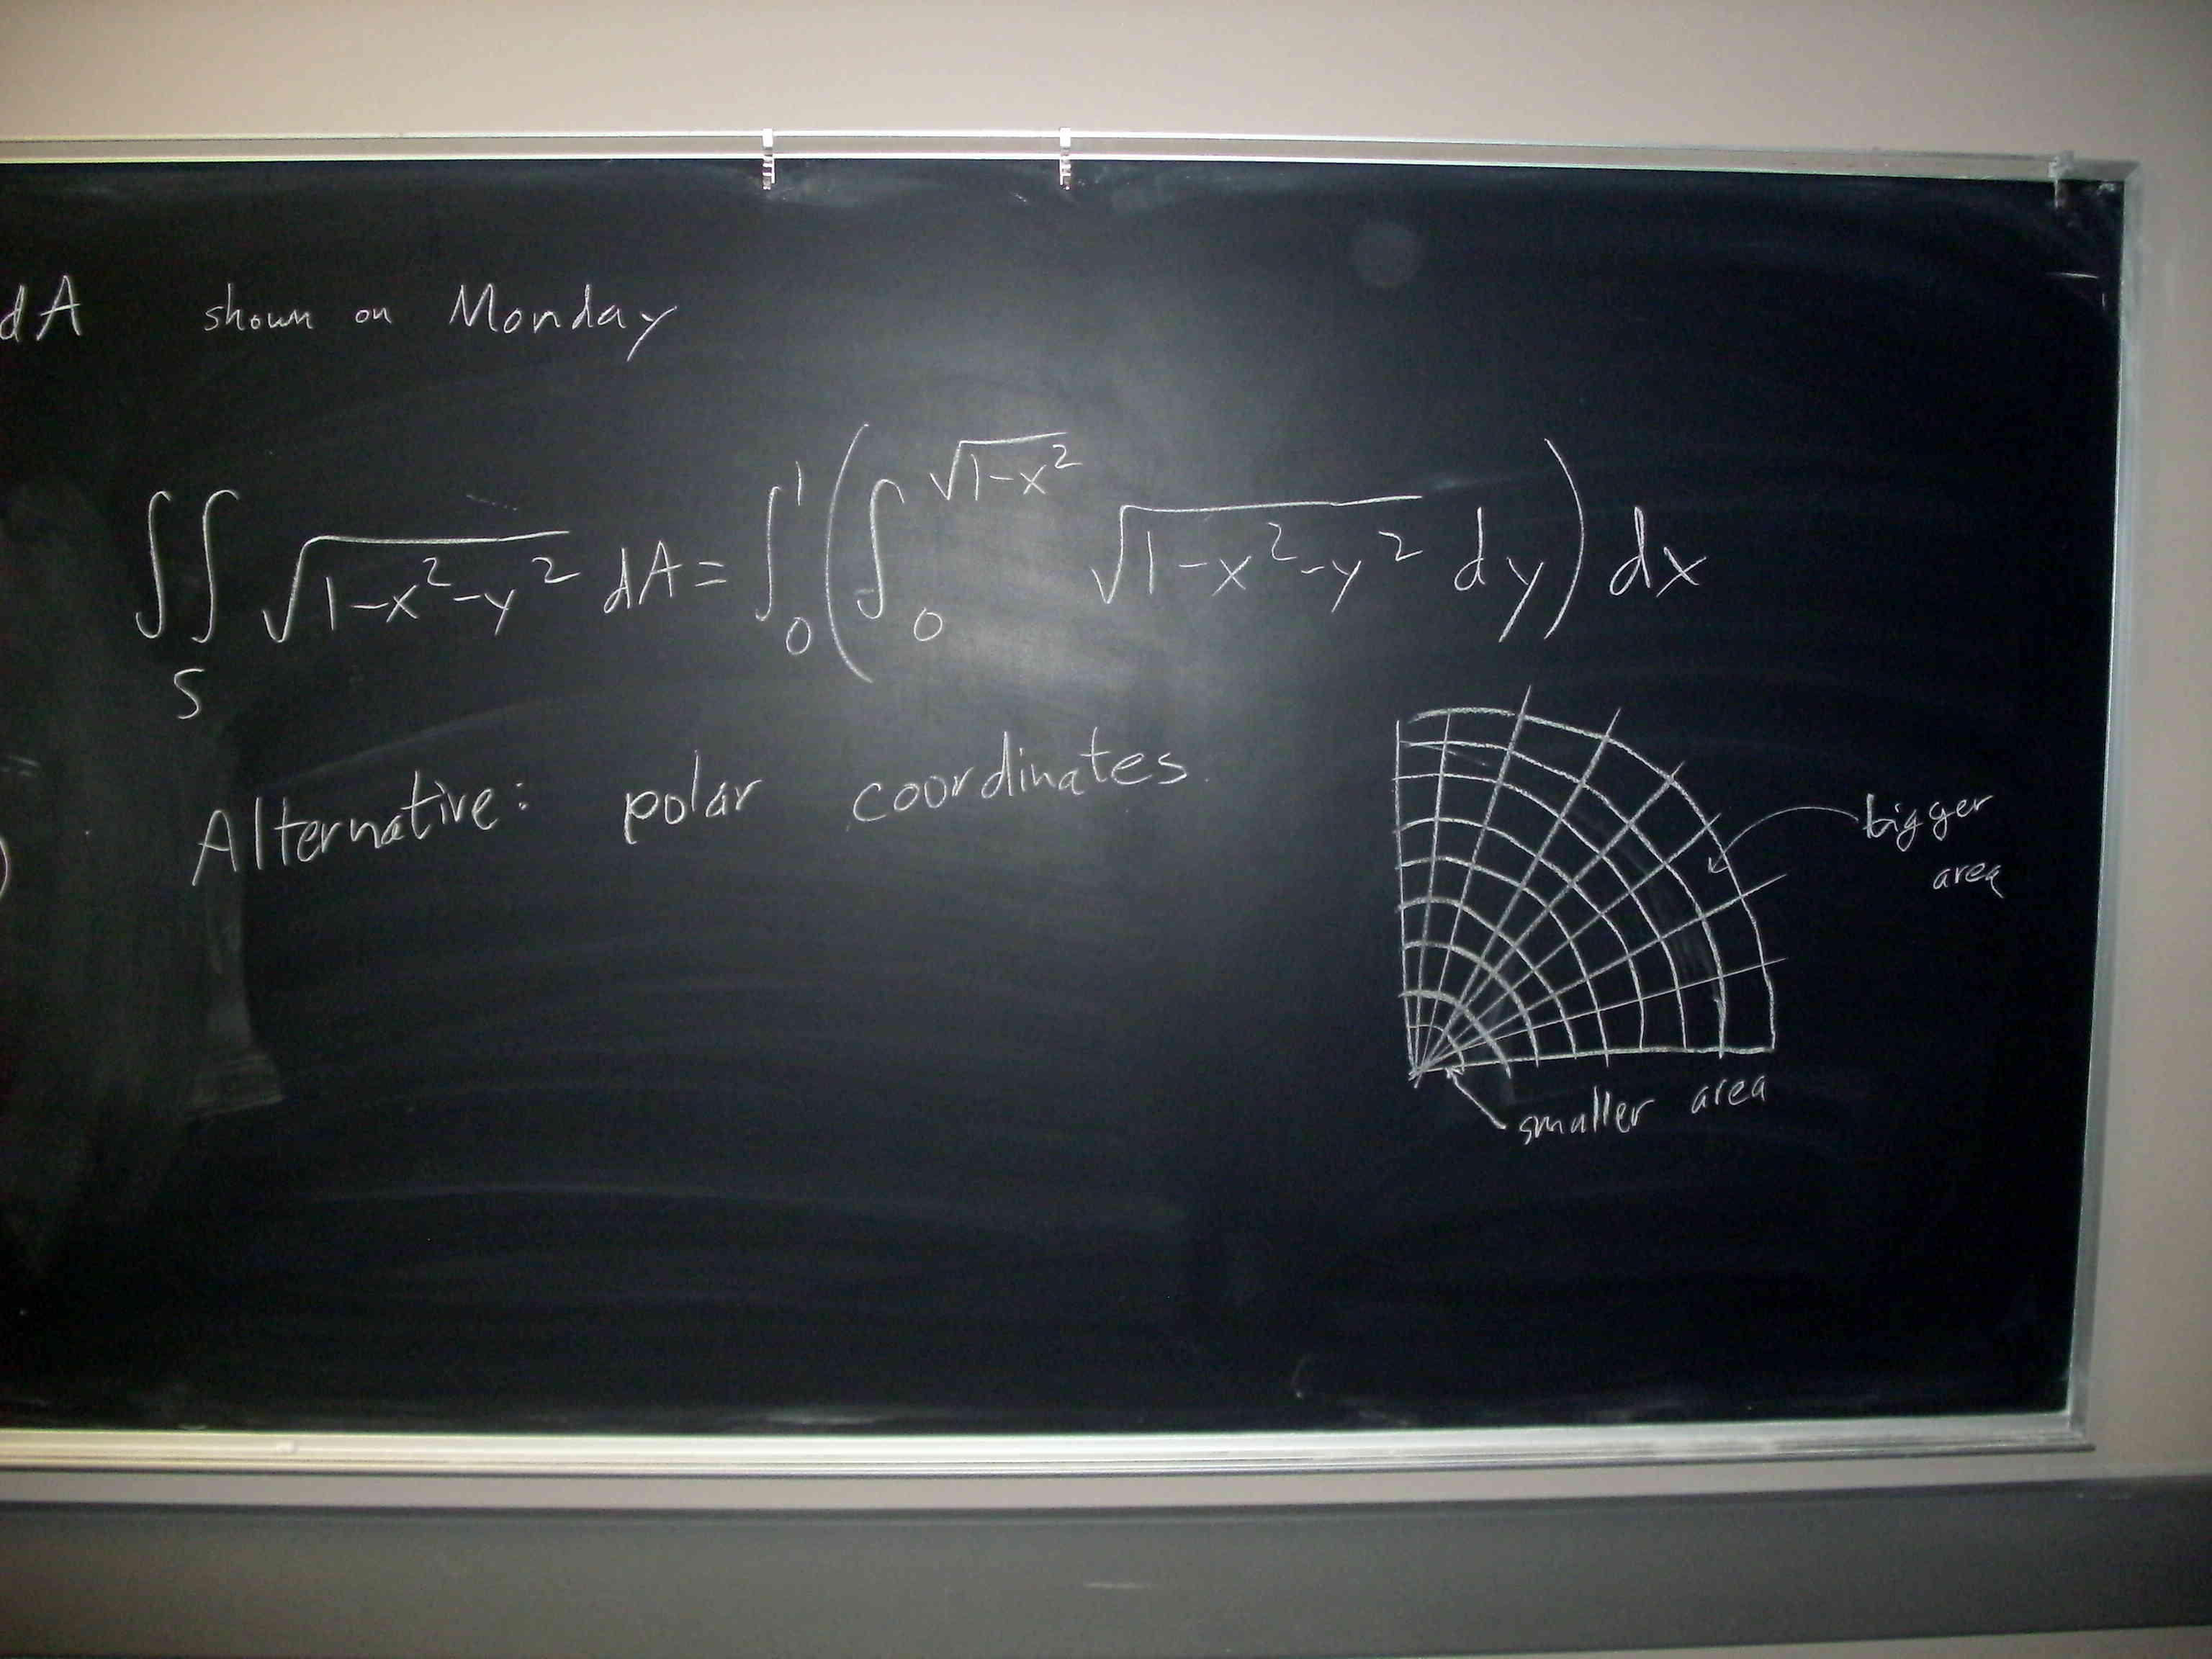 dA shown on Monday
∬_S √(1-x²-y²) dA = ∫₀¹ ( ∫₀^√(1-x²) √(1-x²-y²) dy ) dx
Alternative: polar coordinates.
bigger
area
smaller area